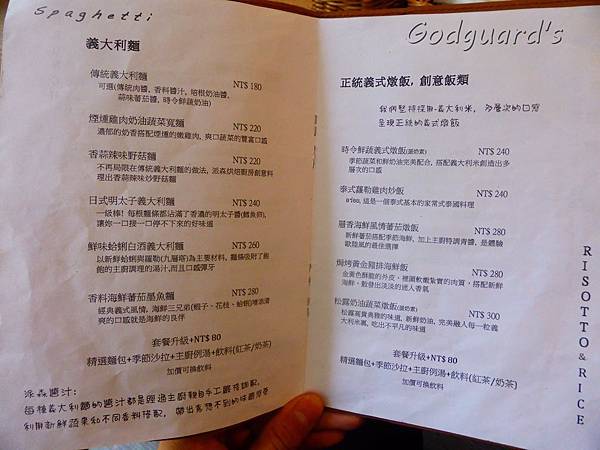 Spaghetti
義大利麵
傳統義大利麵 NT$ 180
可選(傳統肉醬, 香料醬汁, 培根奶油醬,
蒜味蕃茄醬, 時令鮮蔬奶油)
煙燻雞肉奶油蔬菜寬麵 NT$ 220
濃郁的奶香搭配煙燻的嫩雞肉, 爽口蔬菜的豐富口感
香蒜辣味野菇麵 NT$ 220
不再局限在傳統義大利麵的做法, 派森烘焙廚房創意料
理出香蒜辣味炒野菇麵
日式明太子義大利麵 NT$ 240
一級棒! 每根麵條都沾滿了香濃的明太子醬(鱈魚卵),
讓妳一口接一口停不下來的好味道
鮮味蛤蜊白酒義大利麵 NT$ 260
以新鮮蛤蜊與羅勒(九層塔)為主要材料, 麵條吸附了飽
飽的主廚調理的湯汁,而且口感彈牙
香料海鮮蕃茄墨魚麵 NT$ 280
經典義式風情, 海鮮三兄弟(蝦子、花枝、蛤蜊)唯添清
爽的口感就是海鮮的良伴
套餐升級+NT$ 80
精選麵包+季節沙拉+主廚例湯+飲料(紅茶/奶茶)
加價可換飲料
派森醬汁:
每種義大利麵的醬汁都是經過主廚親自手工嚴格調配,
利用新鮮蔬果和不同香料搭配, 帶出意想不到的味蕾享受
Godguard's
正統義式燉飯, 創意飯類
我們堅持採用義大利米, 多層次的口感
呈現正統的義式燉飯
時令鮮蔬義式燉飯(蛋奶素) NT$ 240
季節蔬菜和鮮奶油完美配合, 搭配義大利米創造出多
層次的口感
泰式羅勒雞肉炒飯 NT$ 240
อร่อย, 這是一個泰式基本的家常式泰國料理
層香海鮮風情蕃茄燉飯 NT$ 280
新鮮蕃茄搭配季節海鮮, 加上主廚特調青醬, 是體驗
歐陸風的最佳選擇
焗烤黃金豬排海鮮飯 NT$ 280
金黃色酥脆的外皮、裡面軟嫩紮實的肉質、搭配新鮮
海鮮, 散發出淡淡的迷人香氣
松露奶油蔬菜燉飯(蛋奶素) NT$ 300
松露高貴典雅的味道, 新鮮奶油, 完美融入每一粒義
大利米裏, 吃出不平凡的味道
套餐升級+NT$ 80
精選麵包+季節沙拉+主廚例湯+飲料(紅茶/奶茶)
加價可換飲料
RISOTTO & RICE